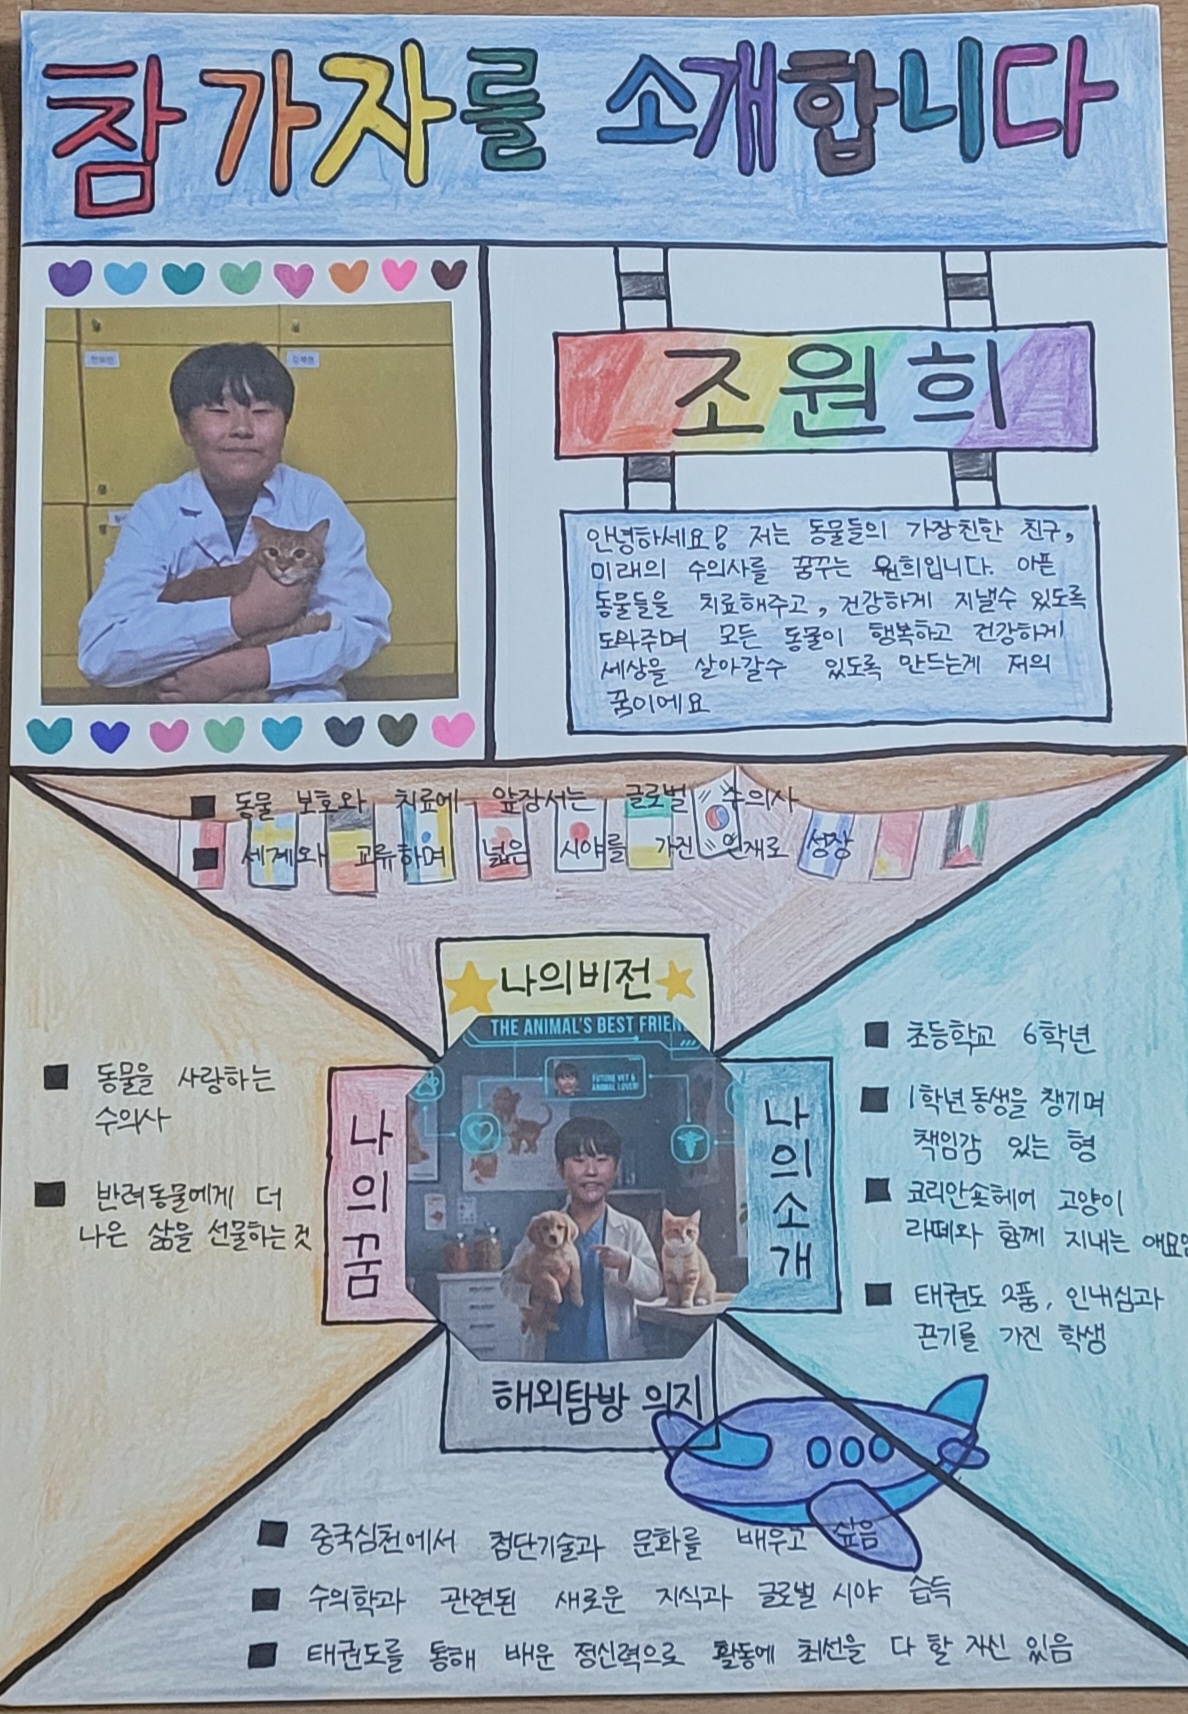 참가자를 소개합니다
조원희
안녕하세요! 저는 동물들의 가장친한 친구,
미래의 수의사를 꿈꾸는 원희입니다. 아픈
동물들을 치료해주고, 건강하게 지낼수 있도록
도와주며 모든 동물이 행복하고 건강하게
세상을 살아갈수 있도록 만드는게 저의
꿈이에요
■ 동물 보호와 치료에 앞장서는 글로벌 수의사
■ 세계와 교류하며 넓은 시야를 가진 인재로 성장
★나의비전★
THE ANIMAL'S BEST FRIEN
FUTURE VET &
ANIMAL LOVER!
나의꿈
■ 동물을 사랑하는
수의사
■ 반려동물에게 더
나은 삶을 선물하는것
나의소개
■ 초등학교 6학년
■ 1학년동생을 챙기며
책임감 있는 형
■ 코리안숏헤어 고양이
라떼와 함께 지내는
■ 태권도 2품, 인내심과
끈기를 가진 학생
해외탐방 의지
■ 중국심천에서 첨단기술과 문화를 배우고 싶음
■ 수의학과 관련된 새로운 지식과 글로벌 시야 습득
■ 태권도를 통해 배운 정신력으로 활동에 최선을 다 할 자신 있음